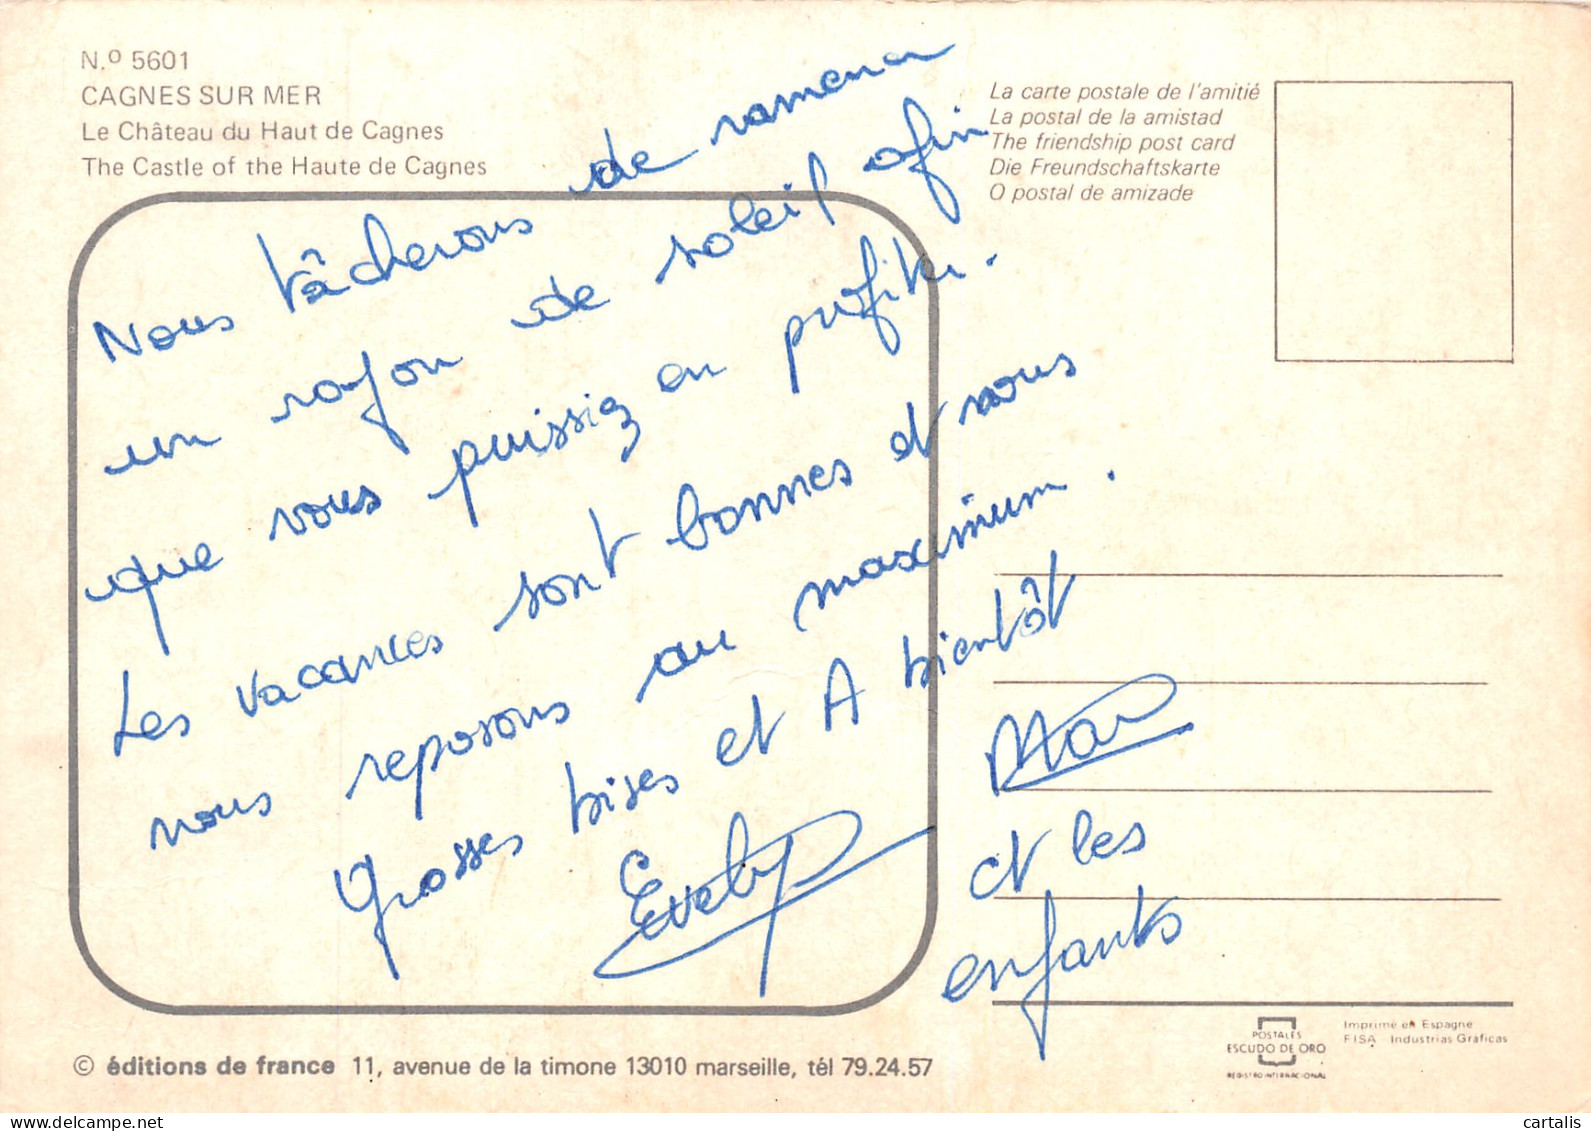 N.º 5601
CAGNES SUR MER
Le Château du Haut de Cagnes
The Castle of the Haute de Cagnes
La carte postale de l'amitié
La postal de la amistad
The friendship post card
Die Freundschaftskarte
O postal de amizade
Nous tâcherons de ramener
un rayon de soleil afin
que vous puissiez en profiter.
Les vacances sont bonnes et nous
nous reposons au maximum.
Grosses bises et A bientôt
Evelyne
et les
enfants
© éditions de france 11, avenue de la timone 13010 marseille, tél 79.24.57
POSTALES
ESCUDO DE ORO
REGISTRO INTERNACIONAL
Imprimé en Espagne
FISA - Industrias Gráficas
cartalis